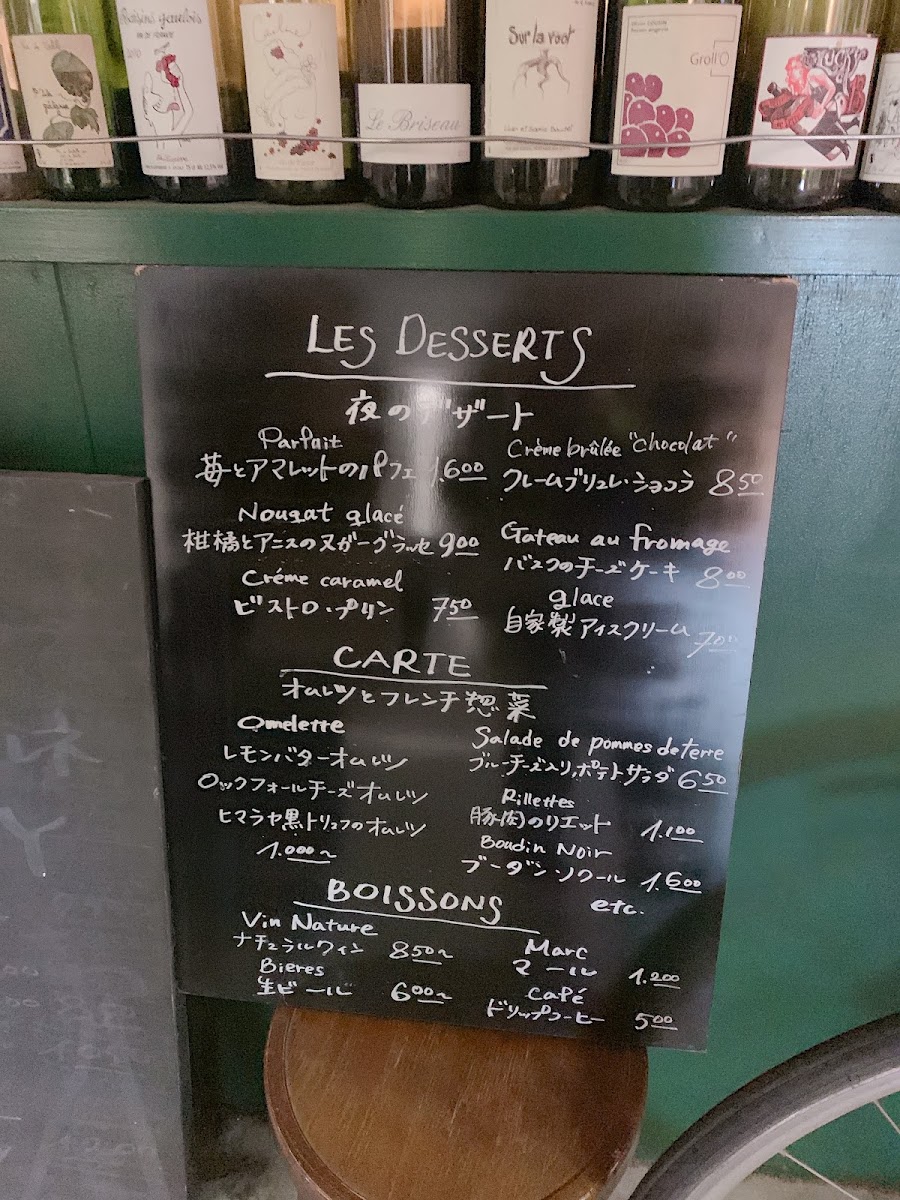 Raisins gaulois
Le Briseau
Sur la root
Groll'O
LES DESSERTS
夜のデザート
Parfait
苺とアマレットのパフェ 1.600
Nougat glacé
柑橘とアニスのヌガーグラッセ 900
Créme caramel
ビストロ・プリン 750
Crème brûlée "chocolat"
クレームブリュレ・ショコラ 850
Gateau au fromage
バスクのチーズケーキ 800
glace
自家製アイスクリーム 700
CARTE
オムレツとフレンチ惣菜
Omelette
レモンバターオムレツ
ロックフォールチーズオムレツ
ヒマラヤ黒トリュフのオムレツ
1.000~
Salade de pommes de terre
ブルーチーズ入りポテトサラダ 650
Rillettes
豚肉のリエット 1.100
Boudin Noir
ブーダンノワール 1.600
etc.
BOISSONS
Vin Nature
ナチュラルワイン 850~
Bieres
生ビール 600~
Marc
マール 1.200
Café
ドリップコーヒー 500